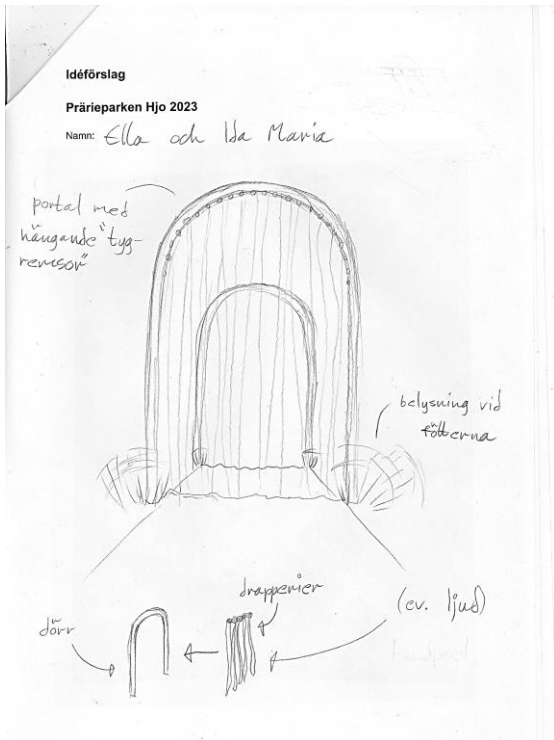 Idéförslag
Prärieparken Hjo 2023
Namn: Ella och Ida Maria
portal med
hängande "tyg-
remsor"
belysning vid
fötterna
drapperier
(ev. ljud)
dörr